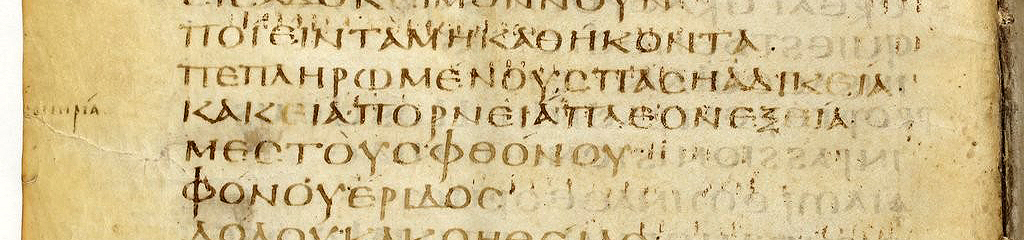 ΠΟΙΕΙΝΤΑΜΗΚΑΘΗΚΟΝΤΑ·
ΠΕΠΛΗΡΩΜΕΝΟΥΣΠΑΣΗΑΔΙΚΕΙΑ·
ΚΑΚΕΙΑΠΟΡΝΕΙΑΠΛΕΟΝΕΞΙΑ
ΜΕΣΤΟΥΣΦΘΟΝΟΥ
ΦΟΝΟΥΕΡΙΔΟΣ
ΔΟΛΟΥΚΑΚΟΗΘΕΙΑΣ